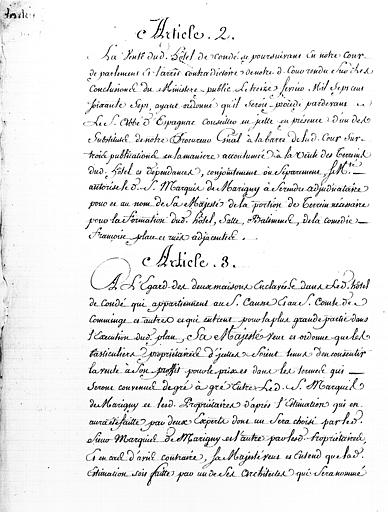 Article. 2.
La Vente dud. hôtel de condé se poursuivant en notre Cour
de parlement Et l'arrêt contradictoire de notre d. Cour rendu Sur les
Conclusions du Ministere public Le treize fevrier Mil Sept cent
soixante Sept, ayant ordonné qu'il seroit procedé pardevant
Le S. Abbé D'Espagnac Conseiller en jcelle en présence d'un des
Substituts de notre Procureur Gnal à la barre de lad. Cour Sur
trois publications en la maniere accoutumée à la Vente des Terreins
dud. hôtel et dépendances, conjointement ou séparément, S. M.
autorise le d. S. Marquis de Marigny à se rendre adjudicataire
pour et au nom de Sa Majesté de la portion de Terrein nécessaire
pour la formation dud. hôtel, Salle, Batiments, de la comédie
françoise, place et rues adjacentes.
Article. 3.
A L'Egard des deux maisons Enclavées dans led. hôtel
de Condé qui appartiennent au S. Causse Et au S. Comte de
Comminge et autres et qui entrent pour la plus grande partie dans
l'Execution dud. plan, Sa Majesté Veut et ordonne que les
Particuliers propriétaires d'jcelles Soient tenus d'en consentir
la vente à Son proffit pour le prix et dans les termes qui
Seront convenus de gré à gré Entre Led. S. Marquis
de Marigny et lesd. Propriétaires d'après l'Estimation qui en
aura été faitte par deux Experts dont un Sera choisi par led.
Sieur Marquis de Marigny et l'autre par lesd. Propriétaires,
Et en cas d'avis contraire, Sa Majesté veut et Entend que lad.
Estimation soit faitte par un de Ses Architectes qui Sera nommé